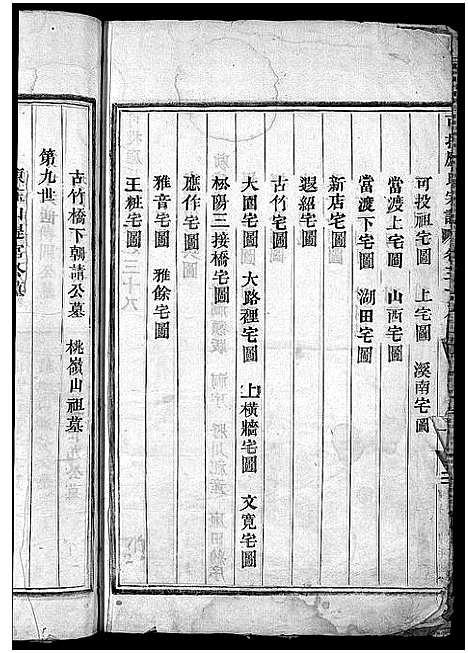 可投祖宅圖 上宅圖 溪南宅圖
當渡上宅圖 山西宅圖
當渡下宅圖 湖田宅圖
新店宅圖
遐紹宅圖
古竹宅圖
大園宅圖 大路裡宅圖 上橫牆宅圖 文寬宅圖
杯陽三接橋宅圖
應作宅圖
雅音宅圖 雅餘宅圖
王粧宅圖
古竹橋下朝請公墓 桃嶺山祖墓
第九世